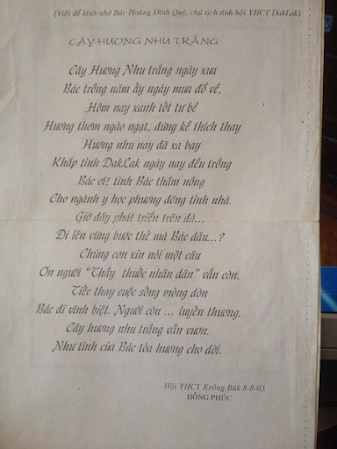 (Viết để kính nhớ Bác Hoàng Đình Quý, chủ tịch tỉnh hội YHCT DakLak)
CÂY HƯƠNG NHU TRẮNG
Cây Hương Nhu trắng ngày xưa
Bác trồng năm ấy ngày mưa đổ về.
Hôm nay xanh tốt tư bề
Hương thơm ngào ngạt, đứng kề thích thay
Hương nhu nay đã xa bay
Khắp tỉnh DakLak ngày nay đều trồng
Bác ơi! tình Bác thắm nồng
Cho ngành y học phương đông tỉnh nhà.
Giờ đây phát triển trên đà...
Đi lên vững bước thế mà Bác đâu...?
Chúng con xin nói một câu
Ơn người "Thầy thuốc nhân dân" vẫn còn.
Tiếc thay cuộc sống mỏng dòn
Bác đi vĩnh biệt. Người còn ... luyến thương.
Cây hương nhu trắng vẫn vươn.
Như tình của Bác tỏa hương cho đời.
Hội YHCT Krông Búk 8-8-03
HỒNG PHÚC